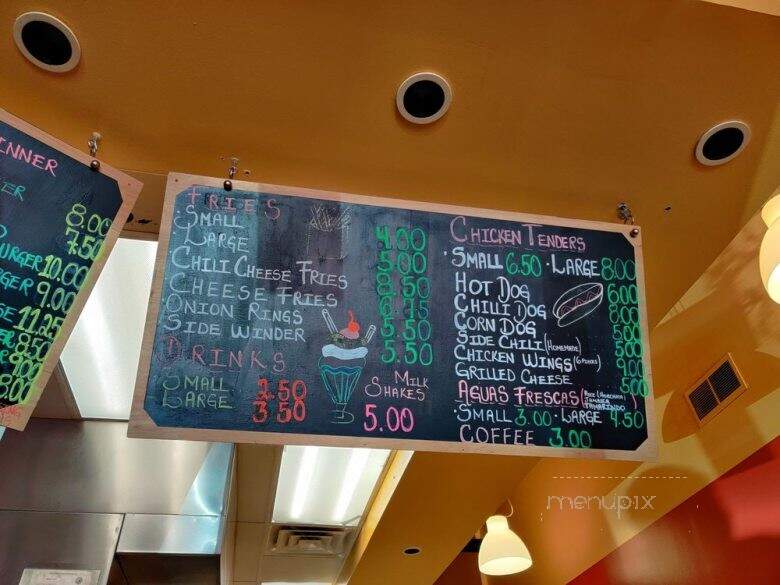 INNER
8.00
7.50
BURGER 10.00
9.00
11.25
8.50
8.00
FRIES
SMALL 4.00
LARGE 5.00
CHILI CHEESE FRIES 8.50
CHEESE FRIES 6.75
ONION RINGS 5.50
SIDE WINDER 5.50
DRINKS
SMALL 2.50
LARGE 3.50
MILK
SHAKES
5.00
CHICKEN TENDERS
SMALL 6.50 · LARGE 8.00
HOT DOG 6.00
CHILI DOG 8.00
CORN DOG 5.00
SIDE CHILI (HOMEMADE) 5.00
CHICKEN WINGS (6 PIECES) 9.00
GRILLED CHEESE 5.00
AGUAS FRESCAS (
JAMAICA
TAMARINDO
· SMALL 3.00 · LARGE 4.50
COFFEE 3.00
menupix